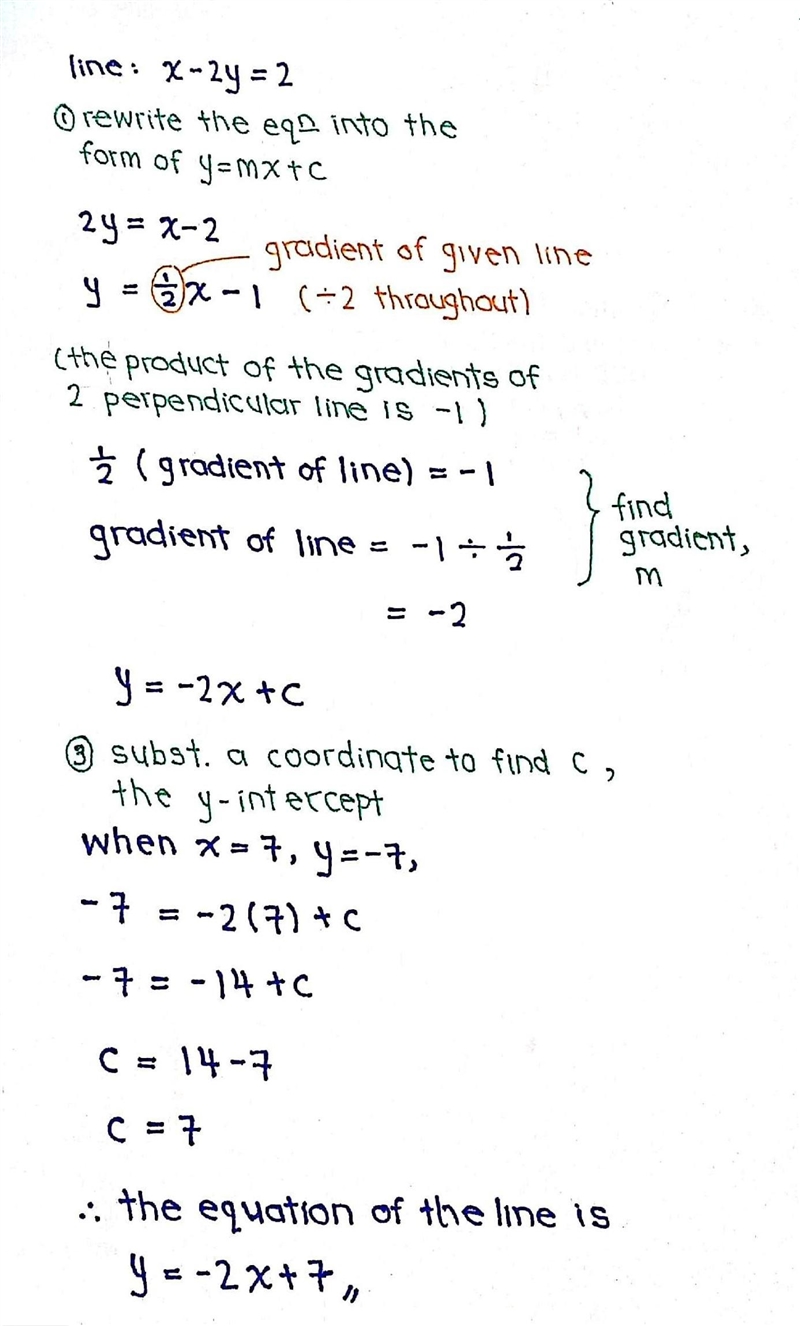 line: x-2y=2
① rewrite the eqn into the
form of y=mx+c
2y = x-2
gradient of given line
y = ½x - 1 (÷2 throughout)
(the product of the gradients of
2 perpendicular line is -1)
½ (gradient of line) = -1
gradient of line = -1 ÷ ½
= -2
} find
gradient,
m
y = -2x + c
③ subst. a coordinate to find c,
the y-intercept
when x = 7, y = -7,
-7 = -2(7) + c
-7 = -14 + c
c = 14 - 7
c = 7
∴ the equation of the line is
y = -2x + 7 〃